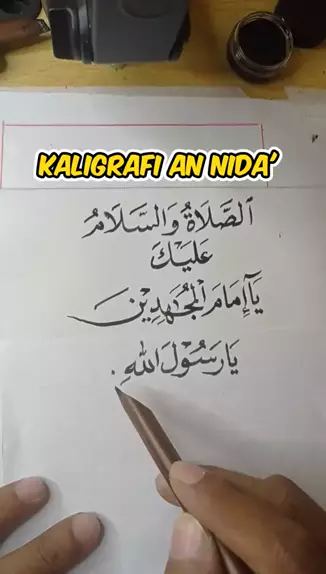 KALIGRAFI AN NIDA'
الصَّلَاةُ وَالسَّلَامُ
عَلَيْكَ
يَآإِمَامَ الْمُجَاهِدِيْنَ
يَا رَسُوْلَ اللّٰهِ.